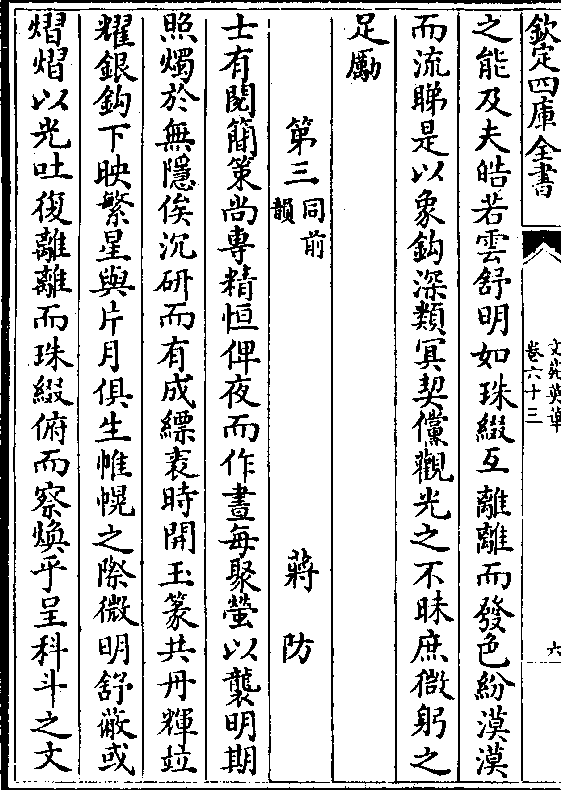 欽定四庫全書
文苑英華
卷六十三
六
之能及夫皓若雲舒明如珠綴互離離而發色紛漠漠
而流睇是以象鈎深類冥契儻觀光之不昧庶微躬之
足勵
第三同前韻
蔣防
士有閱簡策尚專精恒俾夜而作晝每聚螢以襲明期
照燭於無隱俟沉研而有成縹袠時開玉篆共丹輝竝
耀銀鈎下映繁星與片月俱生帷幌之際微明舒蔽或
熠熠以光吐復離離而珠綴俯而察煥乎呈科斗之文